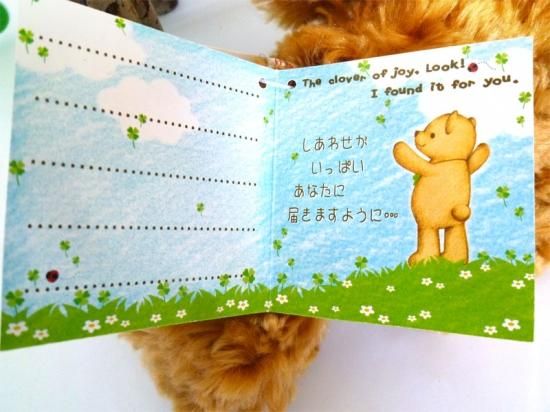 The clover of joy. Look!
I found it for you.
しあわせが
いっぱい
あなたに
届きますように…